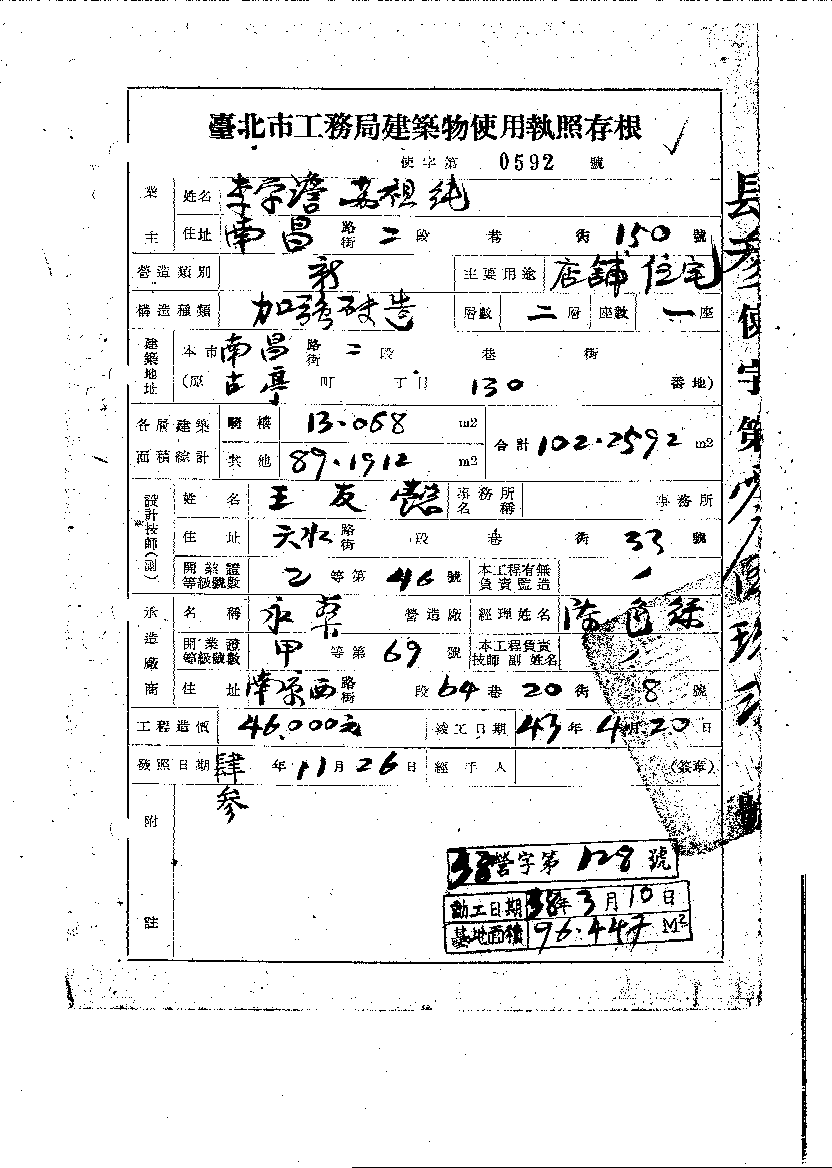 臺北市工務局建築物使用執照存根
使字第 0592 號
業主 姓名 李字澹 祖純
住址 南昌 路街 二 段 巷 街 150 號
營造類別 新 主要用途 店舖住宅
構造種類 加強磚造 層數 二 層 座數 一 座
建築地址 本市 南昌 路街 二 段 巷 街
(原 古亭 町 丁目 130 番地)
各層建築面積綜計 騎樓 13.068 m2 合計 102.2592 m2
其他 89.1912 m2
設計技師(測) 姓名 王友 事務所名稱 事務所
住址 天水 路街 段 巷 街 33 號
開業證等級號數 乙 等第 46 號 本工程有無負責監造
承造廠商 名稱 永 營造廠 經理姓名
開業證等級號數 甲 等第 69 號 本工程負責技師副姓名
住址 南京西 路街 段 64 巷 20 街 8 號
工程造價 46,000元 竣工日期 43 年 4 月 20 日
發照日期 肆參 年 11 月 26 日 經手人 (簽章)
附註
38營字第 128 號
動工日期 38年3月10日
基地面積 96.447 M2
使字第